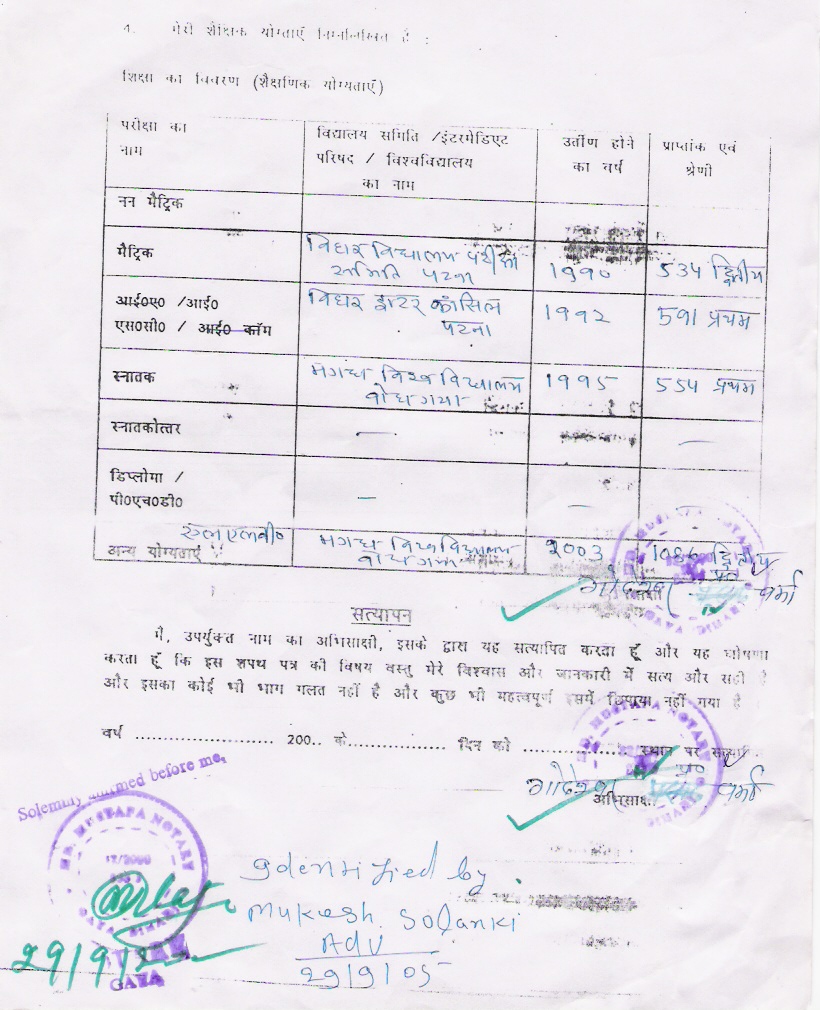 4. मेरी शैक्षिक योग्ताएँ निम्नलिखित है :
शिक्षा का विवरण (शैक्षणिक योग्यताएँ)
परीक्षा का नाम
विद्यालय समिति /इंटरमेडिएट परिषद / विश्वविद्यालय का नाम
उर्तीण होने का वर्ष
प्राप्तांक एवं श्रेणी
नन मैट्रिक
मैट्रिक
बिहार विद्यालय परीक्षा समिति पटना
1990
534 द्वितीय
आई०ए० /आई० एस०सी० / आई० कॉम
बिहार इन्टर कौंसिल पटना
1992
591 प्रथम
स्नातक
मगध विश्व विद्यालय बोध गया
1995
554 प्रथम
स्नातकोत्तर
—
—
डिप्लोमा / पी०एच०डी०
—
—
एल एल बी०
अन्य योग्यताएँ
मगध विश्व विद्यालय बोध गया
2003
1086 द्वितीय
वर्मा
सत्यापन
मैं, उपर्युक्त नाम का अभिसाक्षी, इसके द्वारा यह सत्यापित करता हूँ और यह घोषणा
करता हूँ कि इस शपथ पत्र की विषय वस्तु मेरे विश्वास और जानकारी में सत्य और सही है
और इसका कोई भी भाग गलत नहीं है और कुछ भी महत्वपूर्ण इसमें छिपाया नहीं गया है
वर्ष .................... 200.. के................ दिन को .................. स्थान पर
वर्मा
अभिसाक्षी
Solemnly affirmed before me,
MD. MUSTAFA NOTARY
12/2000
GAYA (BIHAR)
GAYA
29/9/
Identified by
Mukesh Solanki
Adv
29/9/05
MD. MUSTAFA NOTARY